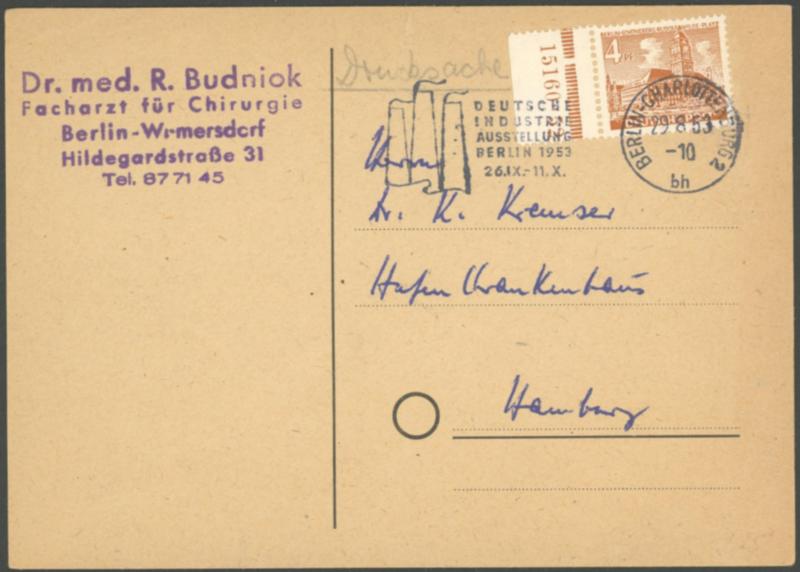 Dr. med. R. Budniok
Facharzt für Chirurgie
Berlin-Wilmersdorf
Hildegardstraße 31
Tel. 87 71 45
Drucksache
DEUTSCHE
INDUSTRIE
AUSSTELLUNG
BERLIN 1953
26.IX.-11.X.
15160
4
BERLIN-CHARLOTTENBURG 2
29.8.53
-10
bh
Herrn
Dr. K. Kremser
Hafenkrankenhaus
Hamburg